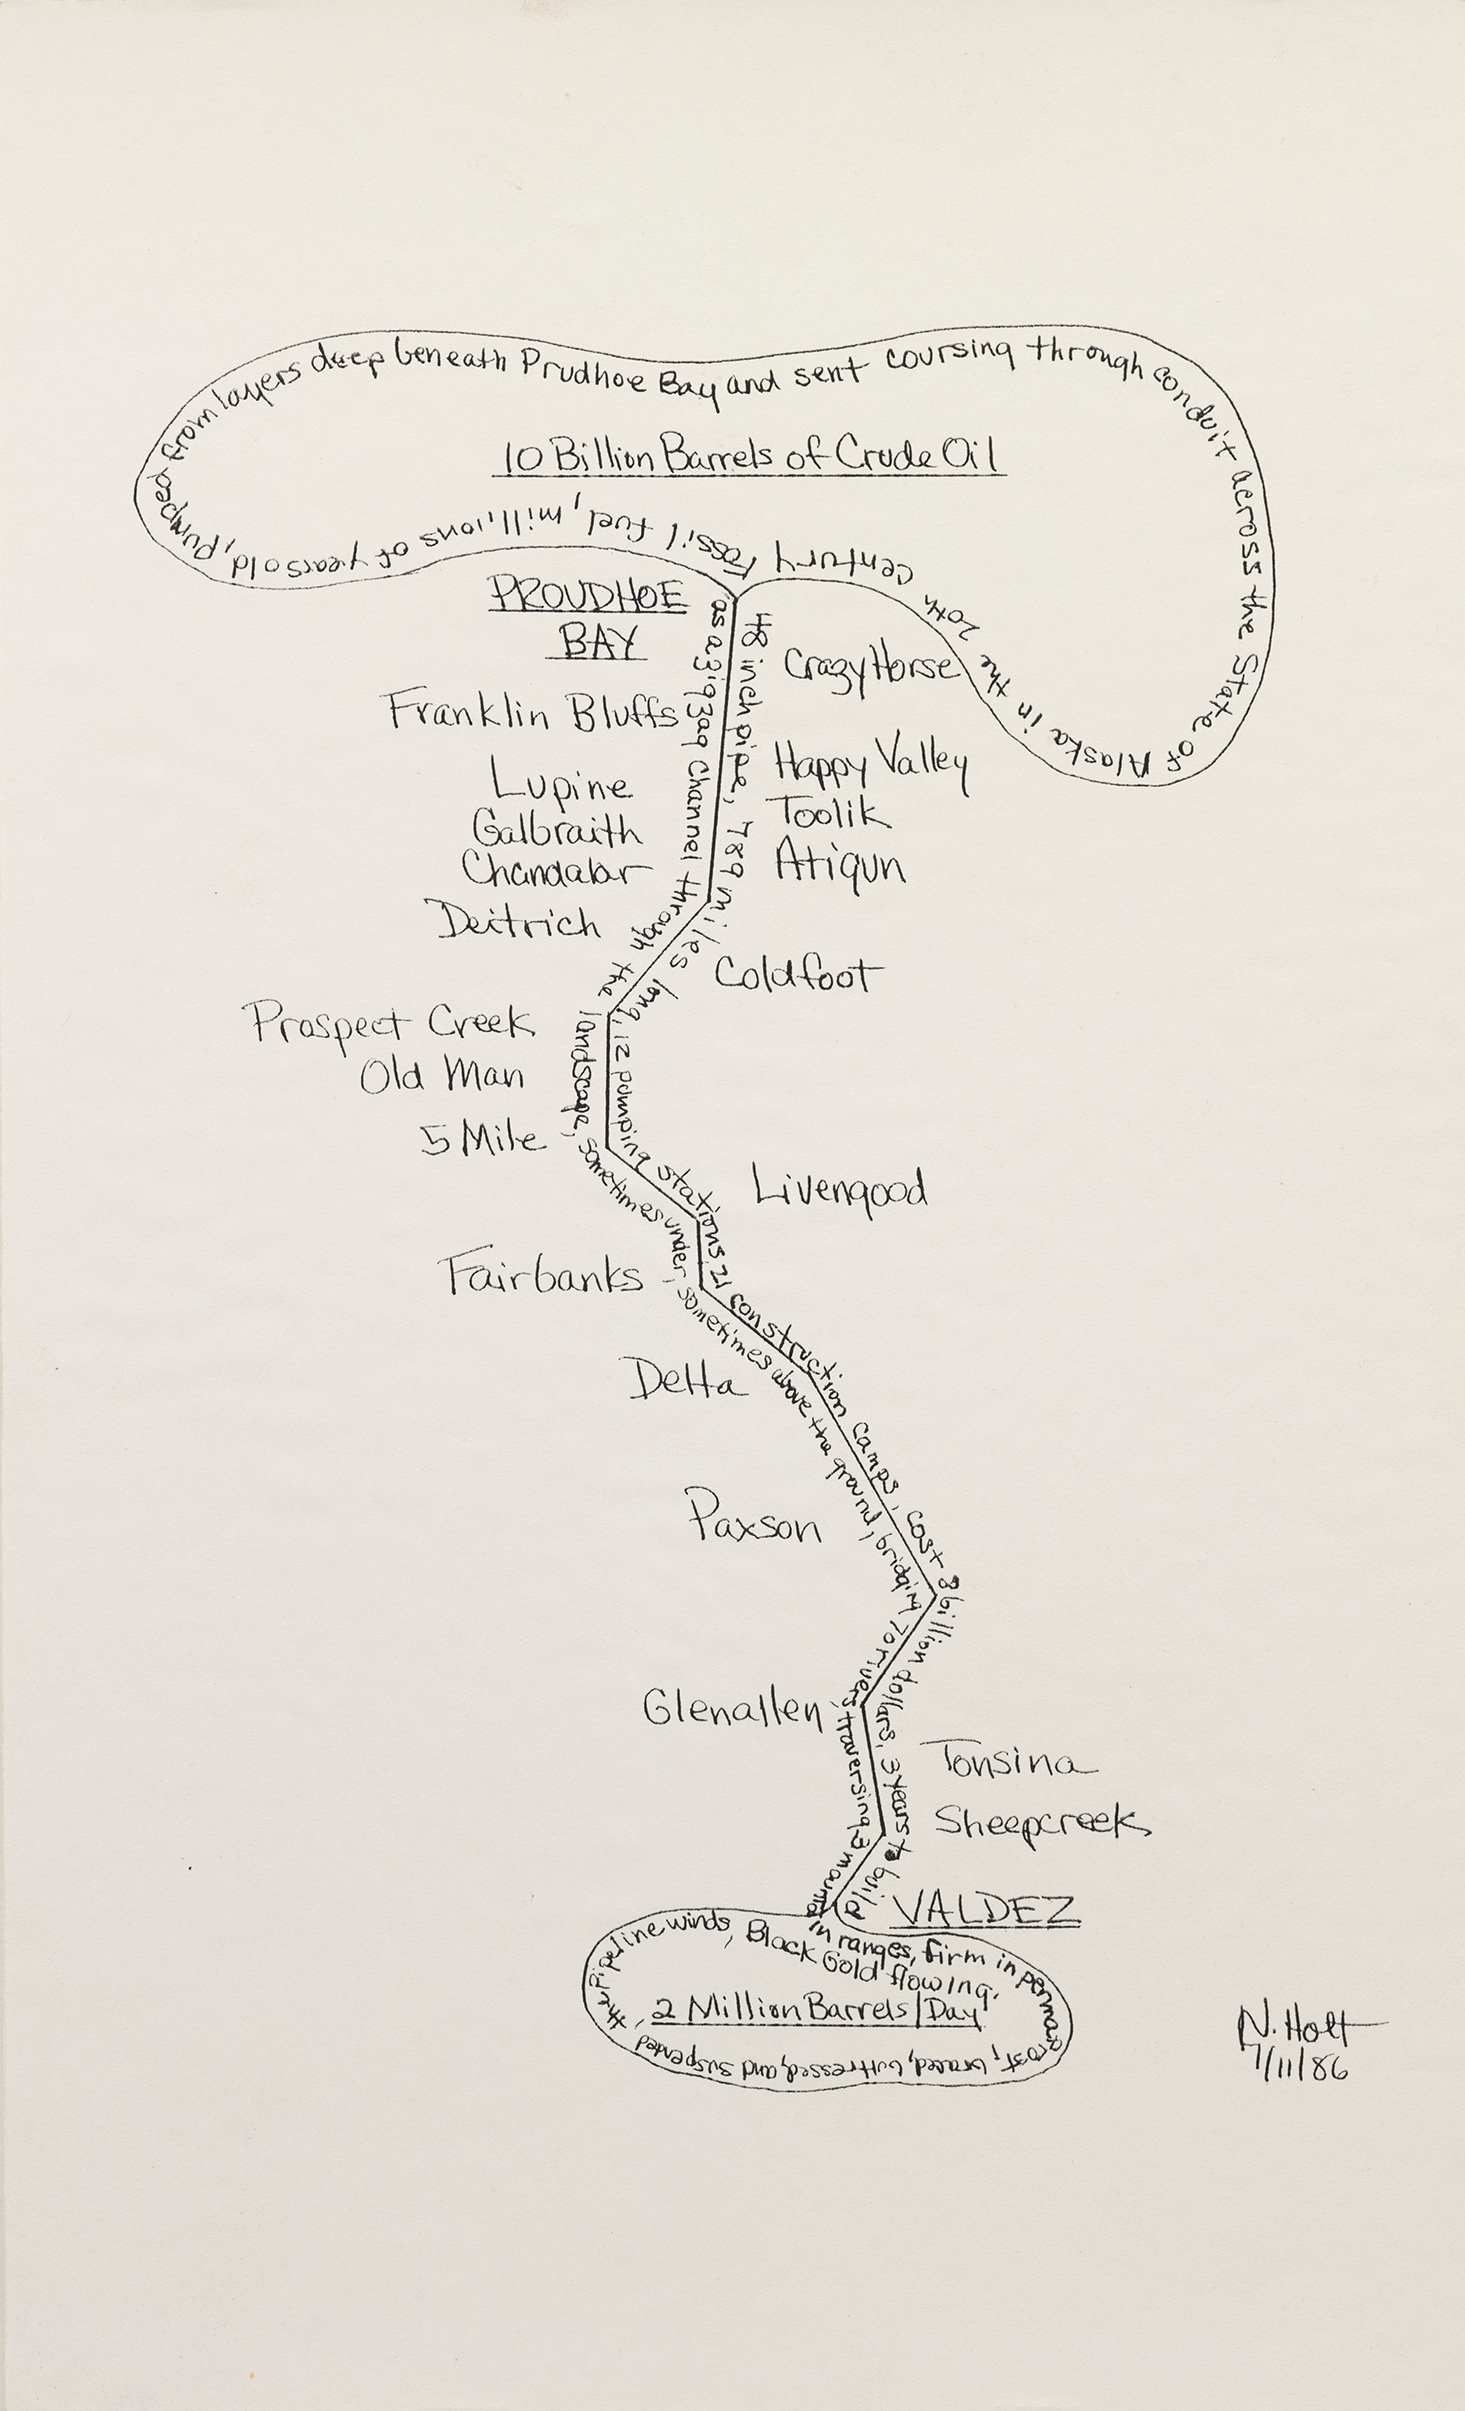 Fossil fuel, millions of years old, pumped from layers deep beneath Prudhoe Bay and sent coursing through conduit across the State of Alaska in the 20th century
10 Billion Barrels of Crude Oil
PROUDHOE
BAY
Crazy Horse
Franklin Bluffs
Happy Valley
Lupine
Toolik
Galbraith
Atigun
Chandalar
Deitrich
Coldfoot
Prospect Creek
Old Man
5 Mile
Livengood
Fairbanks
Delta
Paxson
Glenallen
Tonsina
Sheepcreek
VALDEZ
48 inch pipe, 789 miles long, 12 pumping stations, 21 construction camps, cost 8 billion dollars, 3 years to build
as a zig zag Channel through the landscape, sometimes under, sometimes above the ground, bridging 70 rivers, traversing 3 mountain ranges, firm in permafrost, braced, buttressed, and suspended, the Pipeline winds, Black Gold flowing.
2 Million Barrels/Day
N. Holt
7/11/86